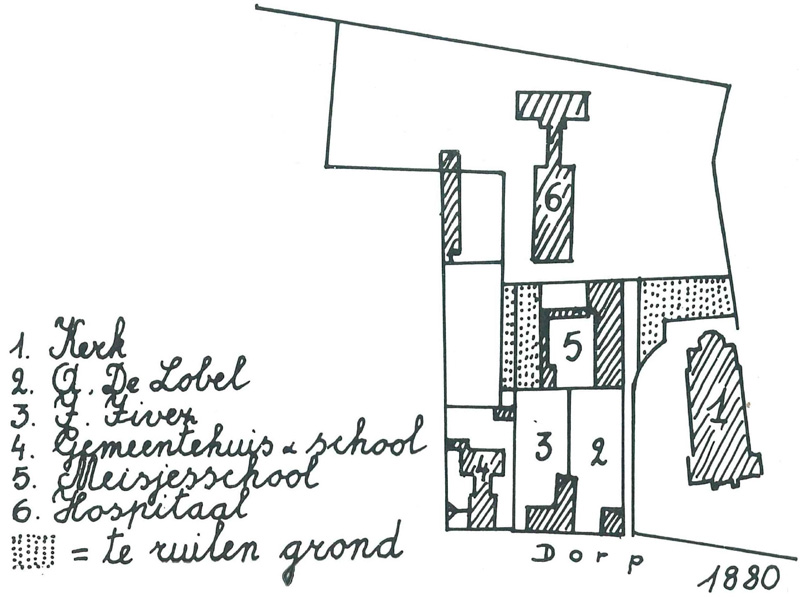 6
5
1
3
2
4
1. Kerk
2. A. De Lobel
3. F. Fiver
4. Gemeentehuis & school
5. Meisjesschool
6. Hospitaal
= te ruilen grond
Dorp
1880